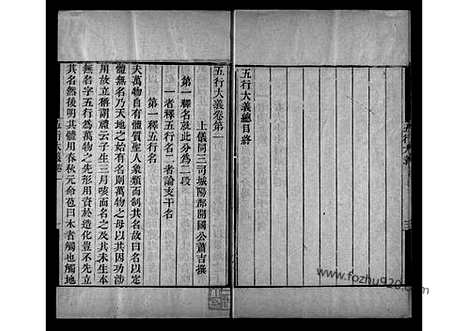 五行大義總目終
五行大義卷第一
上儀同三司城陽郡開國公蕭吉撰
第一釋名就此分為二段
一者釋五行名二者論支干名
第一釋五行名
夫萬物自有體質聖人象類而制其名故曰名以定
體無名乃天地之始有名則萬物之母以其因功涉
用故立稱謂禮云子生三月咳而名之及其未生本
無名字五行為萬物之先形用資於造化豈不先立
其名然後明其體春秋元命苞曰木者觸也觸地
www.fozhu920.com